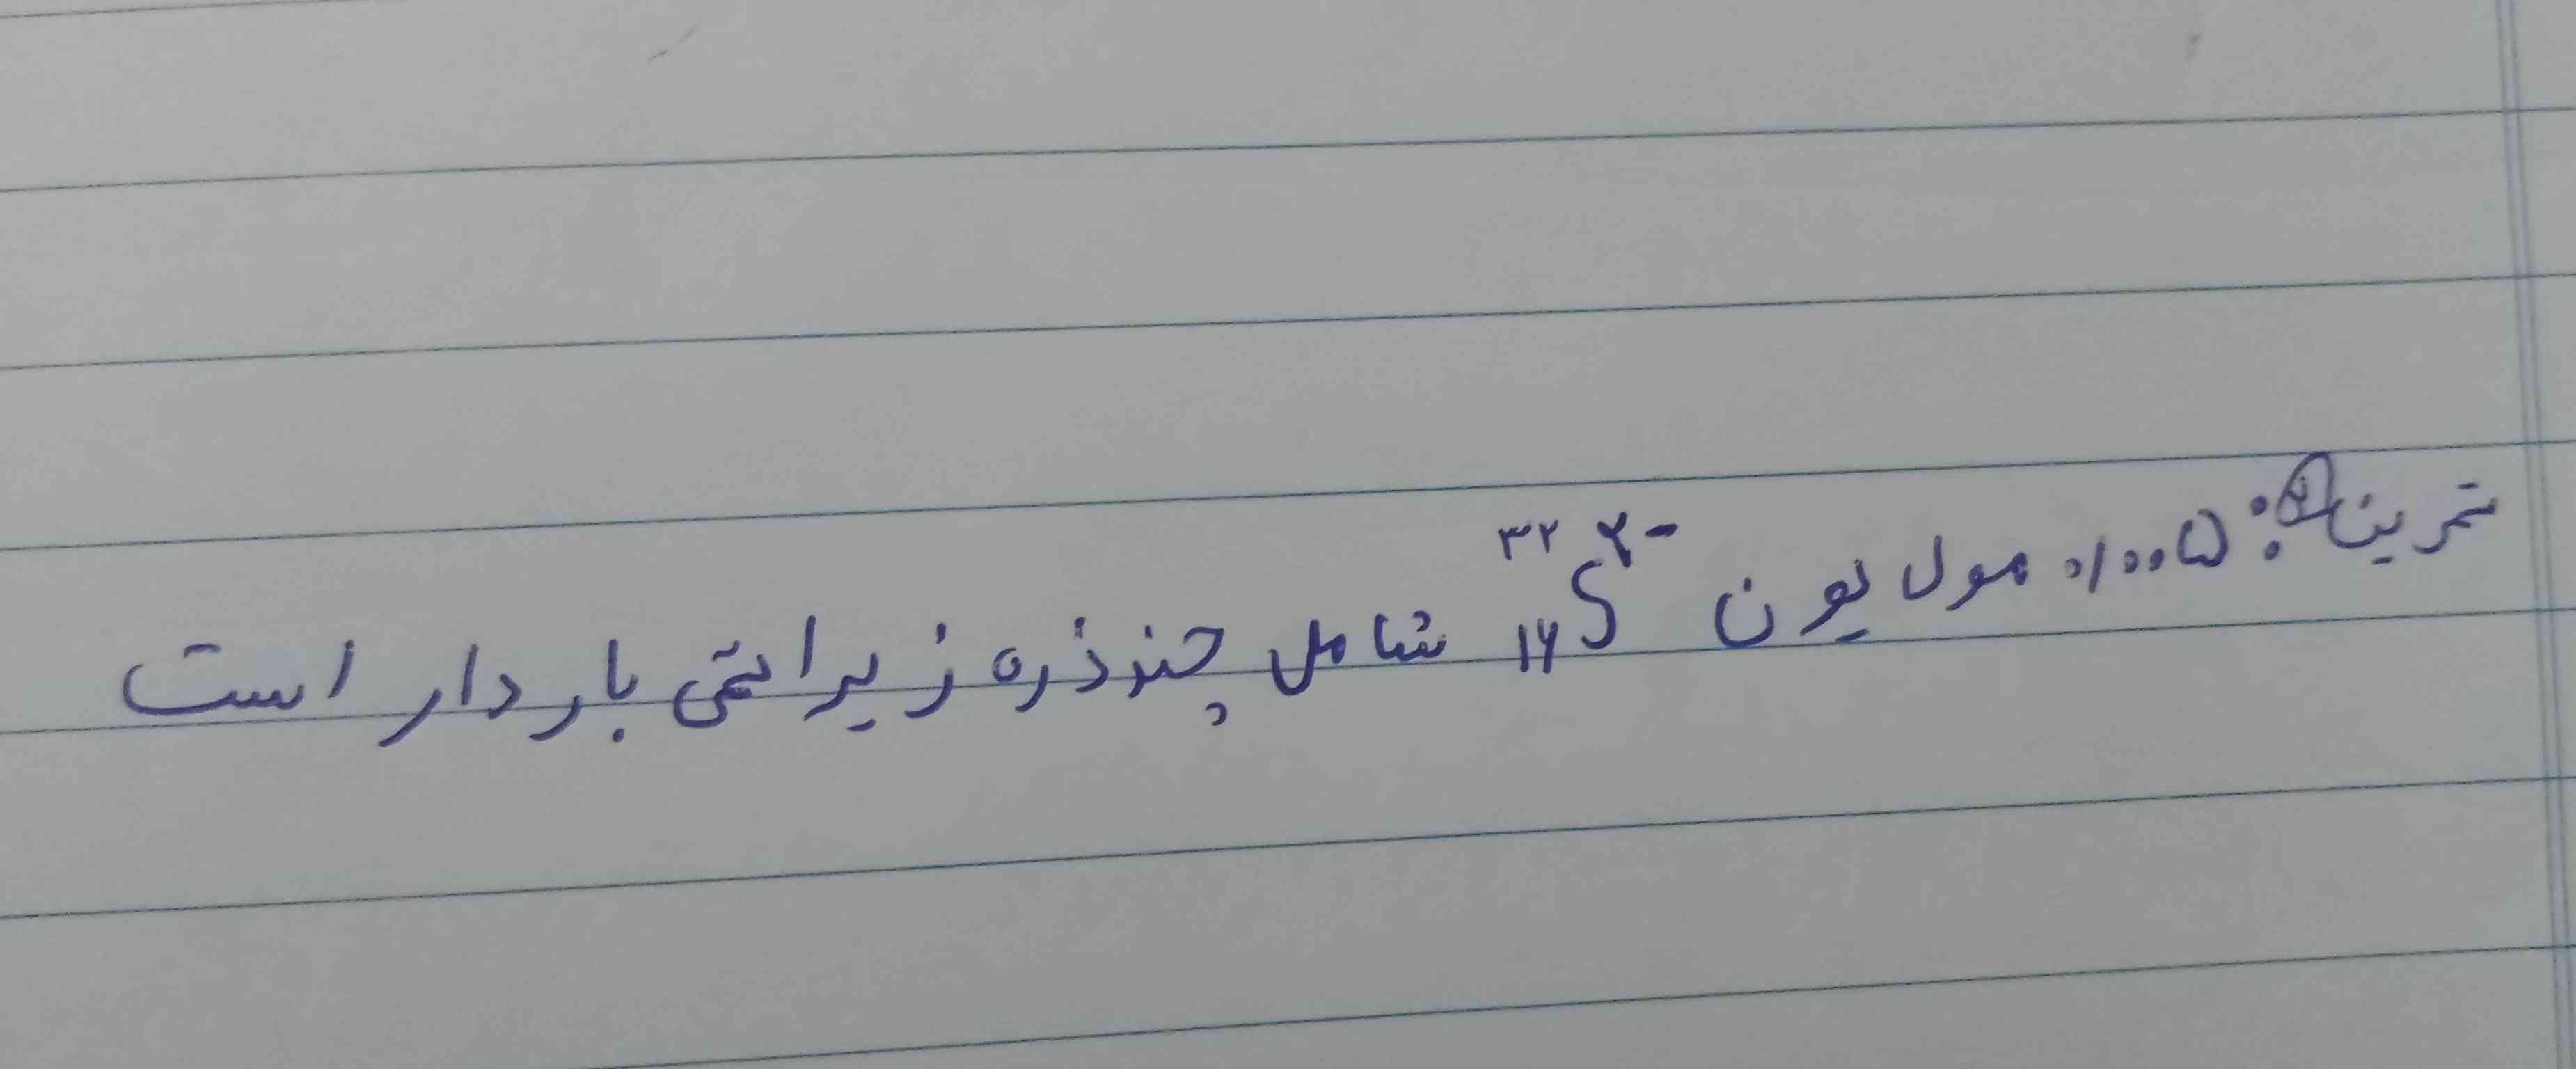 تمرین ۷: ۰/۰۰۵ مول یون ³²₁₆S²⁻ شامل چند ذره زیراتمی باردار است